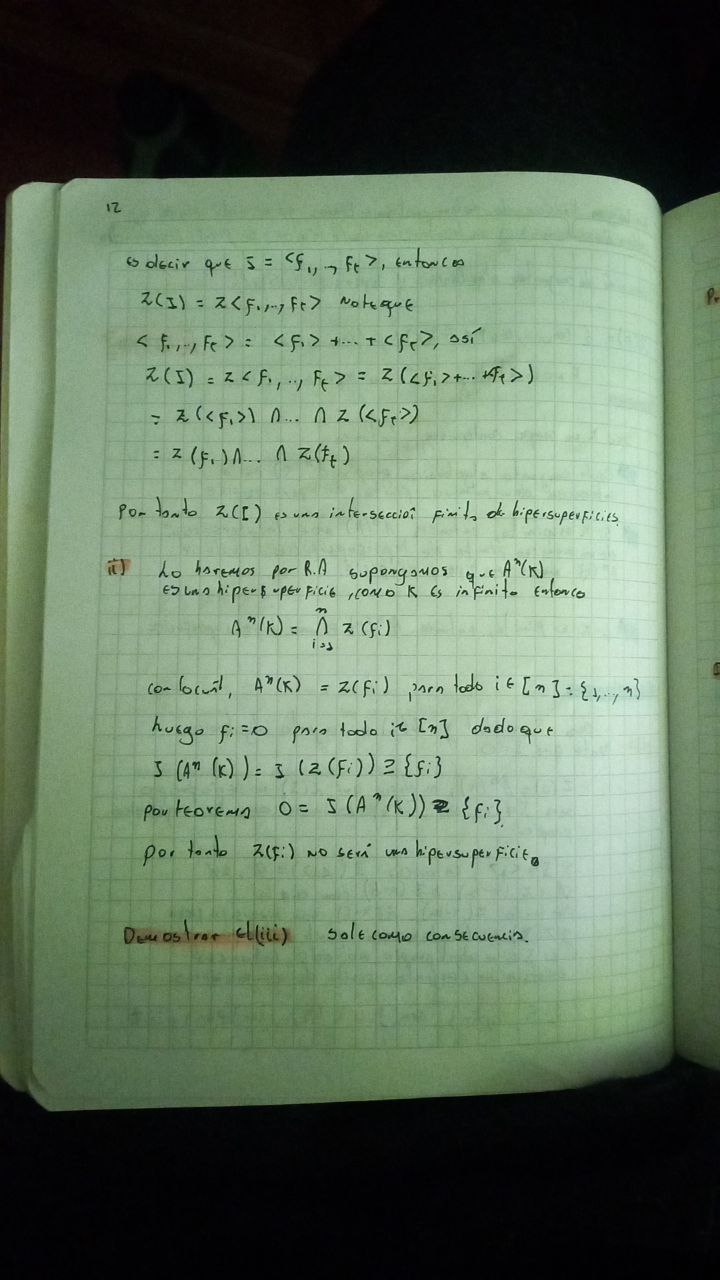 12
es decir que I = <f₁,..,fₜ>, entonces
Z(I) = Z<f₁,..,fₜ> Note que
<f₁,..,fₜ> = <f₁> +...+ <fₜ>, así
Z(I) = Z<f₁,..,fₜ> = Z(<f₁>+...+<fₜ>)
= Z(<f₁>) ∩... ∩ Z(<fₜ>)
= Z(f₁)∩... ∩ Z(fₜ)
Por tanto Z(I) es una intersección finita de hipersuperficies.
ii) Lo haremos por R.A supongamos que Aⁿ(K)
es una hipersuperficie, como K es infinito entonces
Aⁿ(K) = ⋂ⁿᵢ₌₁ Z(fᵢ)
con lo cual, Aⁿ(K) = Z(fᵢ) para todo i ∈ [n] = {1,..,n}
luego fᵢ=0 para todo i∈[n] dado que
I(Aⁿ(K)) = I(Z(fᵢ)) ⊇ {fᵢ}
por teorema 0 = I(Aⁿ(K)) ⊇ {fᵢ}
por tanto Z(fᵢ) no será una hipersuperficie.
Demostrar el(iii) sale como consecuencia.